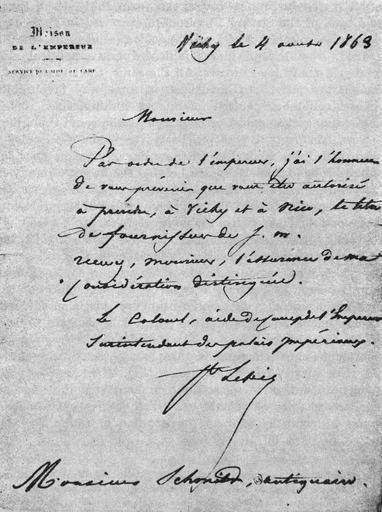 Maison
DE L'EMPEREUR
SERVICE DE L'AIDE DE CAMP
Vichy le 4 août 1863
Monsieur
Par ordre de l'empereur, j'ai l'honneur
de vous prévenir que vous êtes autorisé
à prendre, à Vichy et à Nice, le titre
de fournisseur de S. M.
recevez, monsieur, l'assurance de ma
considération distinguée.
Le Colonel, aide de camp de l'Empereur
Surintendant des palais Impériaux.
Monsieur antiquaire.